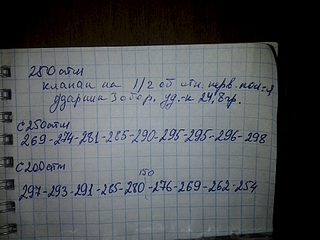 250 атм
клапан на 1/2 об отн. перв. пол-я
ударник 3 обор. уд-к 29,8 гр.
С 250 атм
269-274-281-285-290-295-295-296-298
С 200 атм
150
297-293-291-285-280-276-269-262-254